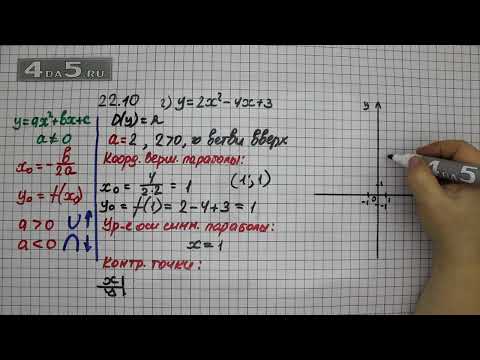 4DA5.RU
22.10 г) y=2x²-4x+3
y=ax²+bx+c
a≠0
x₀=-b/2a
y₀=f(x₀)
a>0 ∪↑
a<0 ∩↓
D(y)=R
a=2, 2>0, ⇒ ветви вверх
Коорд. верш. параболы:
x₀=4/2·2=1 (1;1)
y₀=f(1)=2-4+3=1
Ур-е оси симм. параболы:
x=1
Контр. точки:
x
y
y
1
-1 0 1
-1
4DA5